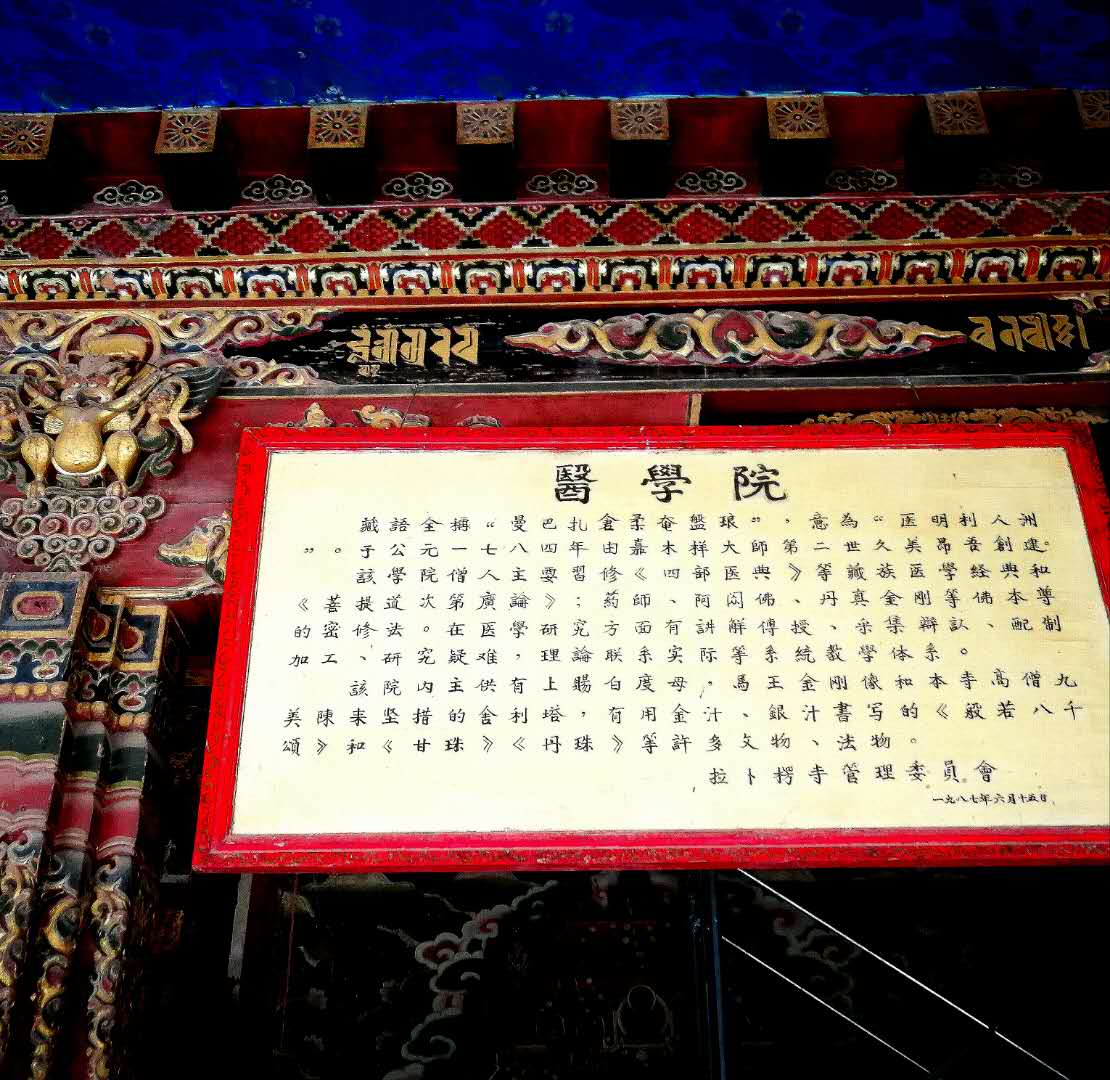 醫學院
藏語全稱“曼巴扎倉柔奄盤琅”，意為“医明利人洲
”。于公元一七八四年由嘉木样大師第二世久美昂吾創建。
該學院僧人主要習修《四部医典》等藏族医學經典和
《菩提道次第廣論》；药師、阿閦佛、丹真金剛等佛本尊
的密修法。在医學研究方面有講解傳授、采集辯認、配制
加工、研究疑难，理論联系实际等系統教學体系。
該院内主供有上賜白度母，馬王金剛像和本寺高僧九
美陳来坚措的舍利塔，有用金汁、銀汁書写的《般若八千
頌》和《甘珠》《丹珠》等許多文物、法物。
拉卜楞寺管理委員會
一九八七年六月十五日